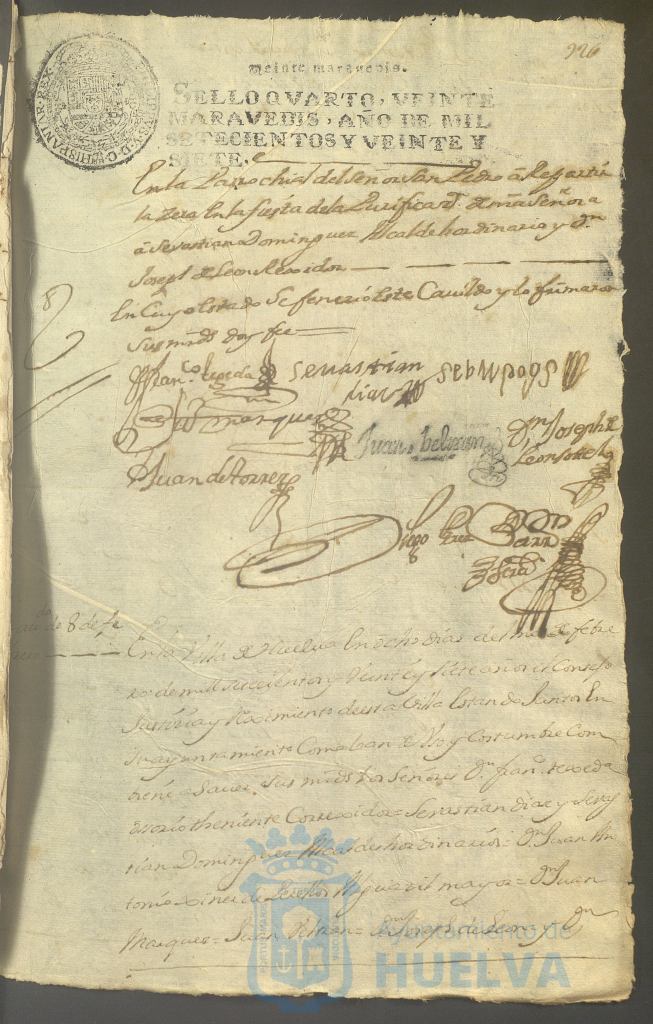 926
veinte maravedis.
SELLO QVARTO, VEINTE
MARAVEDIS, AÑO DE MIL
SETECIENTOS Y VEINTE Y
SIETE.
HISPANIAR. REX.
En la Parrochial del señor san Pedro a Repartir
la zera En la fiesta de la Purificaz.n de nra señora
a Sevastian Dominguez Alcalde hordinario y dn
Joseph de Leon Rexidor
En Cuyo estado se fenezio este Cavildo y lo firmaron
sus mrds doy fee
8
Fran.co texeda
sevastian
diaz
Ju marquez
Juan beltran
Dn Joseph de
Leon
Juan de torres
Diego
de 8 de fe
En la Villa de Huelva En ocho dias del mes de febre
ro de mill setecientos y Veinte y siete años el Consejo
Justizia y Reximiento de esta Villa estando Juntos En
su ayuntamiento Como lo an de Uso y Costumbre Com
biene a Saver, sus mrds los señores Dn Fran.co texeda
theniente Correxidor = Sevastian diaz y Sevas
tian Dominguez Alcaldes hordinarios = Dn Juan An
tonio Alguazil mayor = Dn Juan
Marquez = Juan Veltran = Dn Joseph de Leon y Dn
Ayuntamiento de
HUELVA